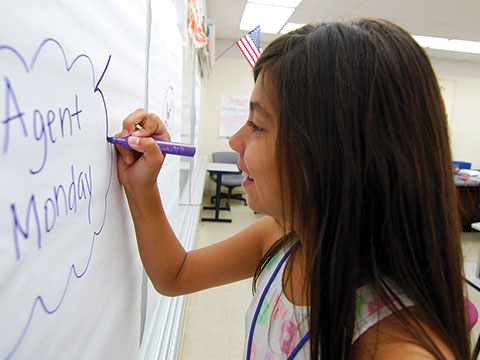 Agent
Monday